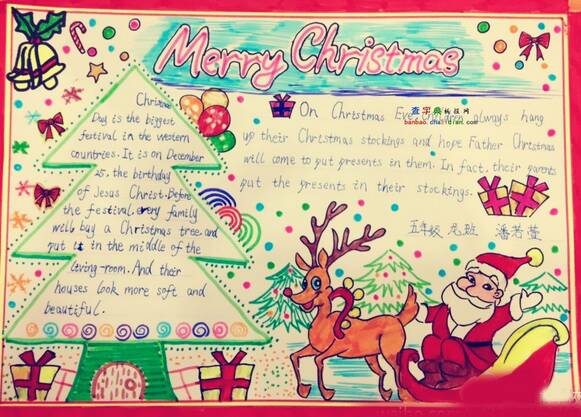 Merry Christmas
Christmas
Day is the biggest
festival in the western
countries. It is on December
25, the birthday
of Jesus Christ. Before
the festival, every family
will buy a Christmas tree, and
put it in the middle of the
living-room. And their
houses look more soft and
beautiful.
查字典手抄报网
banbao.chazidian.com
On Christmas Eve, children always hang
up their Christmas stockings and hope Father Christmas
will come to put presents in them. In fact, their parents
put the presents in their stockings.
五年级 潘若萱